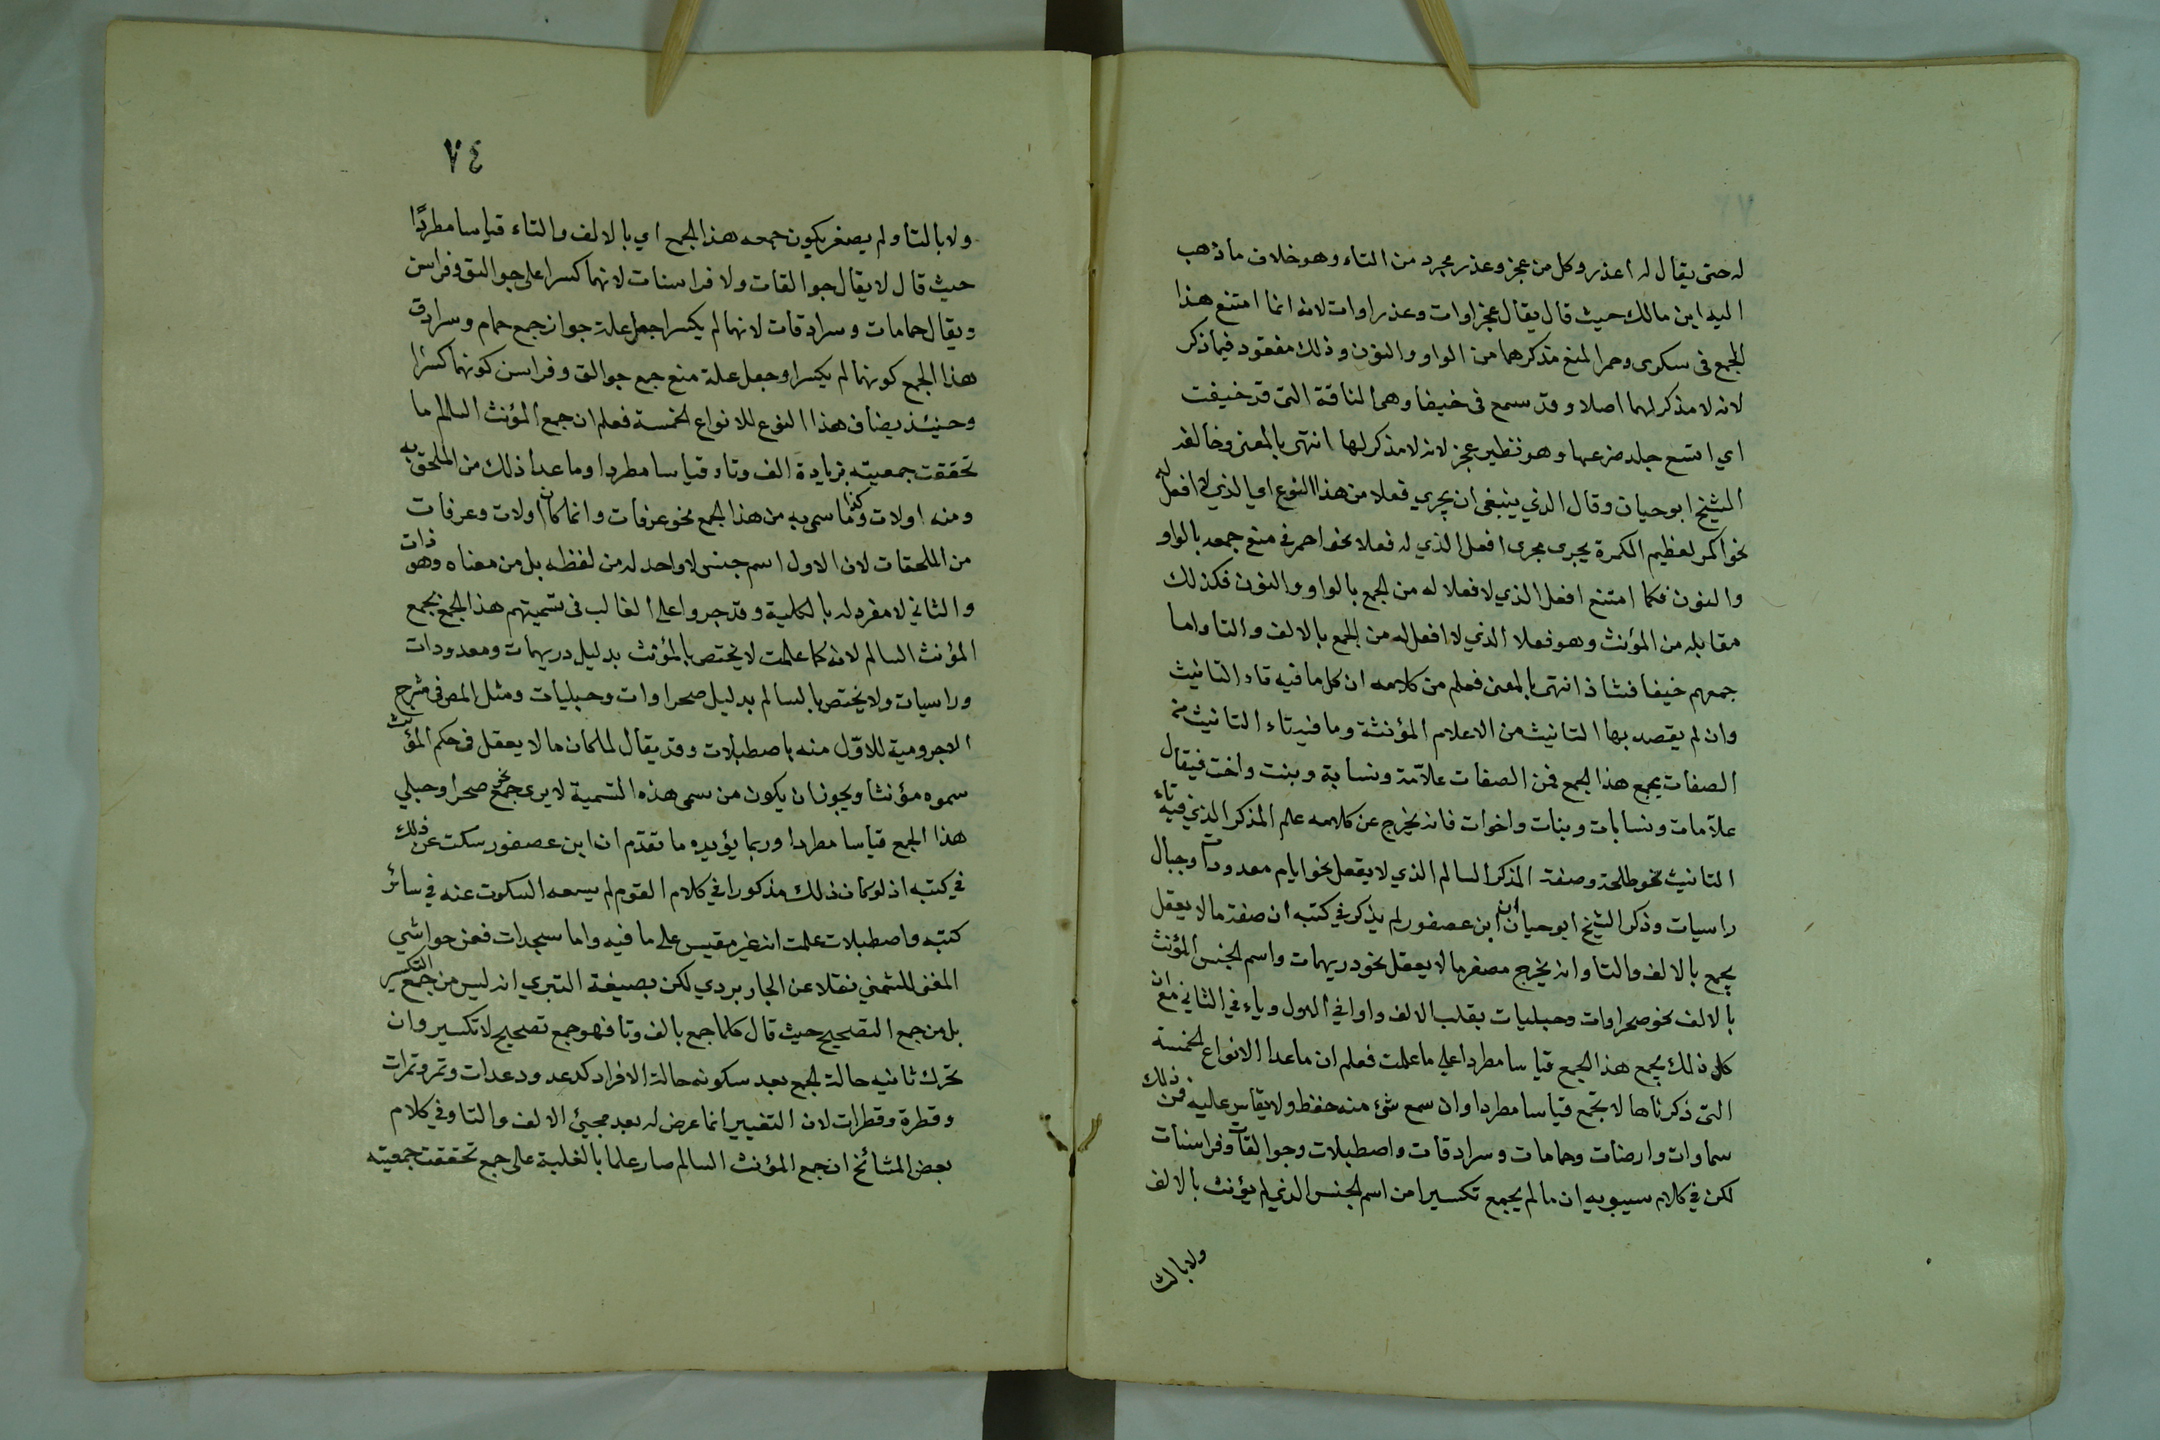 له حتى يقال له اعذر وكل من عجز وعذر مجرد من التاء وهو خلاف ما ذهب
اليه ابن مالك حيث قال يقال عجزاوات وعذراوات لانه انما امتنع هذا
الجمع فى سكرى وحمرا لمنع مذكرهما من الواو والنون وذلك مفقود فيما ذكر
لانه لا مذكر لهما اصلا وقد سمع فى خيفا وهى الناقة التى قد خيفت
اي اتسع جلد ضرعها وهو نظير عجز لانه لا مذكر لها انتهى بالمعنى وخالفه
الشيخ ابو حيات وقال الذي ينبغى ان يجري فعلا من هذا النوع اي الذي لا افعل له
نحو اكمر لعظيم الكمرة يجرى مجرى افعل الذي له فعلا نحو احمر فى منع جمعه بالواو
والنون فكما امتنع افعل الذي لا فعلا له من الجمع بالواو والنون فكذلك
مقابله من المؤنث وهو فعلا الذي لا افعل له من الجمع بالالف والتا واما
جمعهم خيفا فشاذ انتهى بالمعنى فعلم من كلامه ان كل ما فيه تاء التانيث
وان لم يقصد بها التانيث من الاعلام المؤنثة وما فيه تاء التانيث من
الصفات يجمع هذا الجمع فمن الصفات علاّمة ونسابة وبنت واخت فيقال
علاّمات ونسابات وبنات واخوات فانه يخرج عن كلامه علم المذكر الذي فيه تاء
التانيث نحو طلحة وصفة المذكر السالم الذي لا يعقل نحو ايام معدودات وجبال
راسيات وذكر الشيخ ابو حيان ان ابن عصفور لم يذكر في كتبه ان صفة ما لا يعقل
يجمع بالالف والتا وانه يخرج مصغر ما لا يعقل نحو دريهمات واسم الجنس المؤنث
بالالف نحو صحراوات وحبليات بقلب الالف واوا في الاول وياء في الثاني مع ان
كل ذلك يجمع هذا الجمع قياسا مطردا على ما علمت فعلم ان ما عدا الانواع الخمسة
التى ذكرناها لا تجمع قياسا مطردا وان سمع شئ منه حفظ ولا يقاس عليه فمن ذلك
سماوات وارضات وحمامات وسرادقات واصطبلات وجوالقات وفراسنات
لكن في كلام سيبويه ان ما لم يجمع تكسيرا من اسم الجنس الذي لم يؤنث بالالف
ولا بالتا
٧٤
ولا بالتا ولم يصغر يكون جمعه هذا الجمع اي بالالف والتاء قياسا مطردًا
حيث قال لا يقال جوالقات ولا فراسنات لانهما كسرا على جوالق وفراسن
ويقال حمامات وسرادقات لانهما لم يكسرا جعل علة جواز جمع حمام وسرادق
هذا الجمع كونهما لم يكسرا وجعل علة منع جمع جوالق وفراسن كونهما كسرا
وحينئذ يضاف هذا النوع للانواع الخمسة فعلم ان جمع المؤنث السالم ما
تحققت جمعيته بزيادة الف وتاء قياسا مطردا وما عدا ذلك من الملحق به
ومنه اولات وكذا ما سمى به من هذا الجمع نحو عرفات وانما كان اولات وعرفات
من الملحقات لان الاول اسم جنس لا واحد له من لفظه بل من معناه وهو ذات
والثاني لا مفرد له بالكلية وقد جروا على الغالب فى تسميتهم هذا الجمع بجمع
المؤنث السالم لانه كما علمت لا يختص بالمؤنث بدليل دريهمات ومعدودات
وراسيات ولا يختص بالسالم بدليل صحراوات وحبليات ومثل المص فى شرح
الاجرومية للاوّل منه باصطبلات وقد يقال لما كان ما لا يعقل فى حكم المؤنث
سموه مؤنثا ويجوز ان يكون من سمى هذه التسمية لا يرى جمع نحو صحرا وحبلي
هذا الجمع قياسا مطردا وربما يؤيده ما تقدّم ان ابن عصفور سكت عن ذلك
في كتبه اذ لو كان ذلك مذكورا في كلام القوم لم يسعه السكوت عنه في سائر
كتبه واصطبلات علمت انه غير مقيس على ما فيه واما سجدات فعن حواشي
المغنى للشمني نقلا عن الجاربردي لكن بصيغة التبري انه ليس من جمع التكسير
بل من جمع التصحيح حيث قال كلما جمع بالف وتا فهو جمع تصحيح لا تكسير وان
تحرك ثانيه حالة الجمع بعد سكونه حالة الافراد كدعد ودعدات وتمر وتمرات
وقطرة وقطرات لان التغيير انما عرض له بعد مجيئ الالف والتا وفي كلام
بعض المشائخ ان جمع المؤنث السالم صار علما بالغلبة على جمع تحققت جمعيته